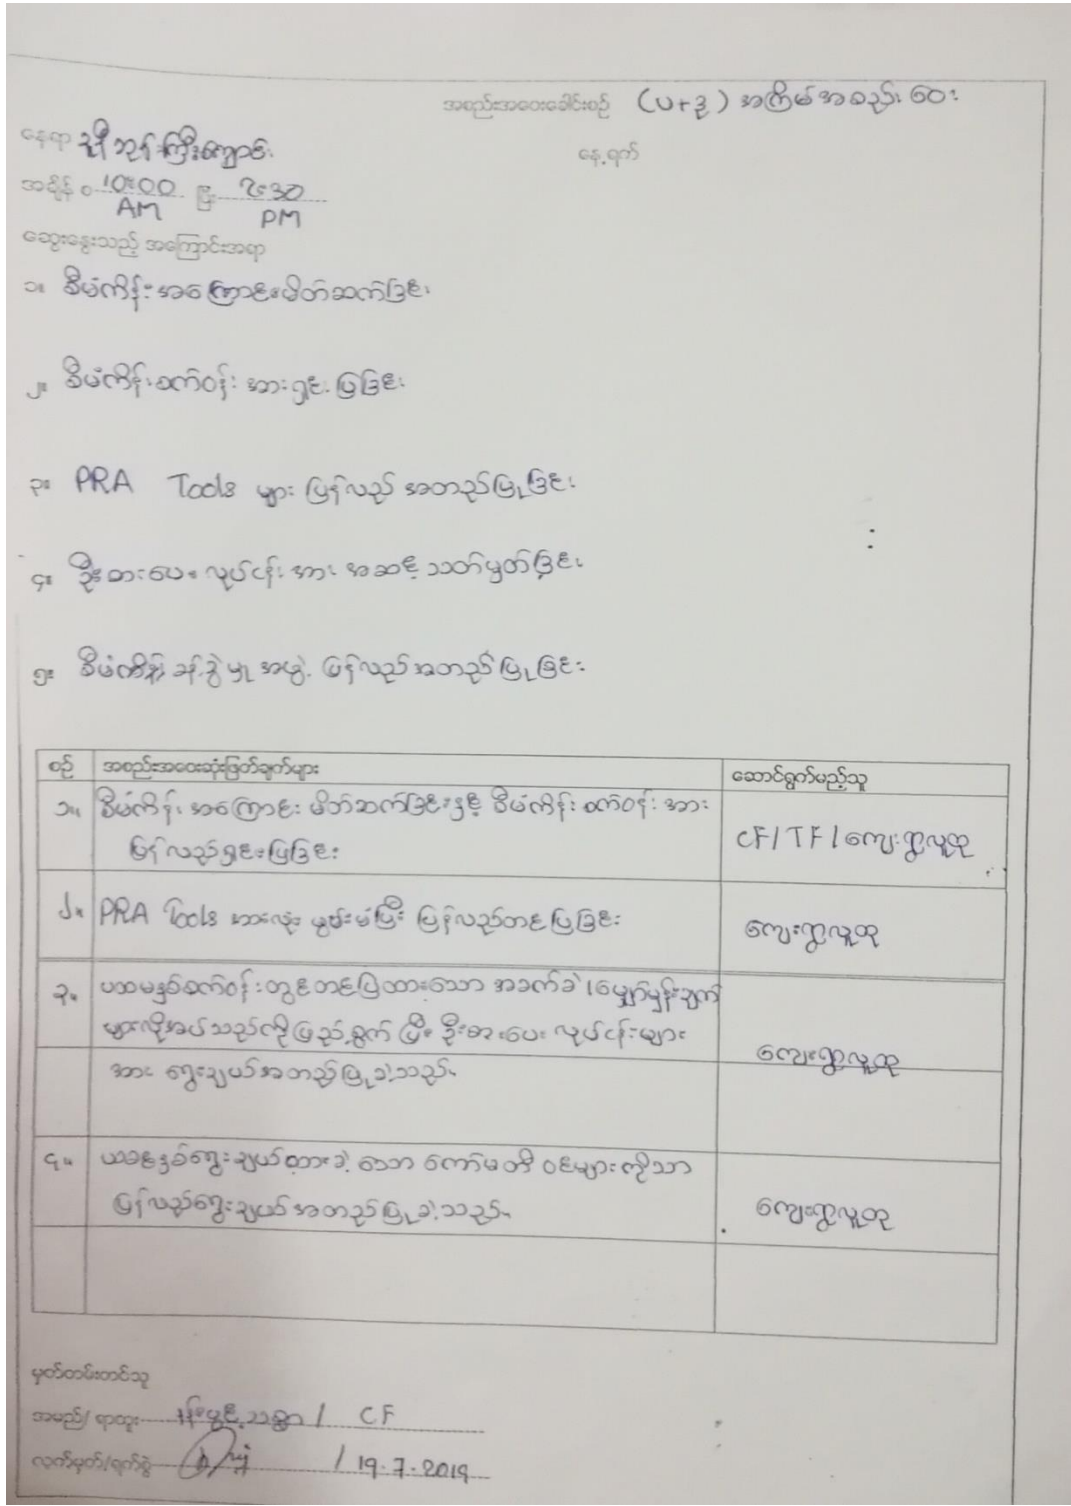 အစည်းအဝေးခေါင်းစဉ် (ပ+ဒု) အကြိမ်အစည်းဝေး
နေရာ ဘုန်းကြီးကျောင်း နေ့ရက်
အချိန် ၀ 10:00 AM မှ ပြီး 2:30 PM
ဆွေးနွေးသည့် အကြောင်းအရာ
၁။ စီမံကိန်းအကြောင်းမိတ်ဆက်ခြင်း
၂။ စီမံကိန်းစက်ဝန်း အားရှင်းပြခြင်း
၃။ PRA Tools များ ပြန်လည် အတည်ပြုခြင်း
၄။ ဦးစားပေး လုပ်ငန်း အား အဆင့်သတ်မှတ်ခြင်း
၅။ စီမံကိန်း စီမံခန့်ခွဲမှု အဖွဲ့ ပြန်လည်အတည်ပြုခြင်း
စဉ် အစည်းအဝေးဆုံးဖြတ်ချက်များ ဆောင်ရွက်မည့်သူ
၁။ စီမံကိန်း အကြောင်း မိတ်ဆက်ခြင်းနှင့် စီမံကိန်း စက်ဝန်း အား
ပြန်လည်ရှင်းပြခြင်း CF/TF/ကျေးရွာလူထု
၂။ PRA Tools အားလုံး မွမ်းမံပြီး ပြန်လည်တင်ပြခြင်း ကျေးရွာလူထု
၃။ ပထမနှစ်စက်ဝန်းတွင်တင်ပြထားသော အခက်ခဲ၊ မျှော်မှန်းချက်
များလိုအပ်သည်ကိုဖြည့်စွက် ပြီး ဦးစားပေး လုပ်ငန်းများ
အား ရွေးချယ်အတည်ပြုခဲ့သည်။ ကျေးရွာလူထု
၄။ ယခင်နှစ်ရွေးချယ်ထားခဲ့သော ကော်မတီ ဝင်များကိုသာ
ပြန်လည်ရွေးချယ် အတည်ပြုခဲ့သည်။ ကျေးရွာလူထု
မှတ်တမ်းတင်သူ
အမည်/ ရာထူး / CF
လက်မှတ်/ရက်စွဲ / 19.7.2019